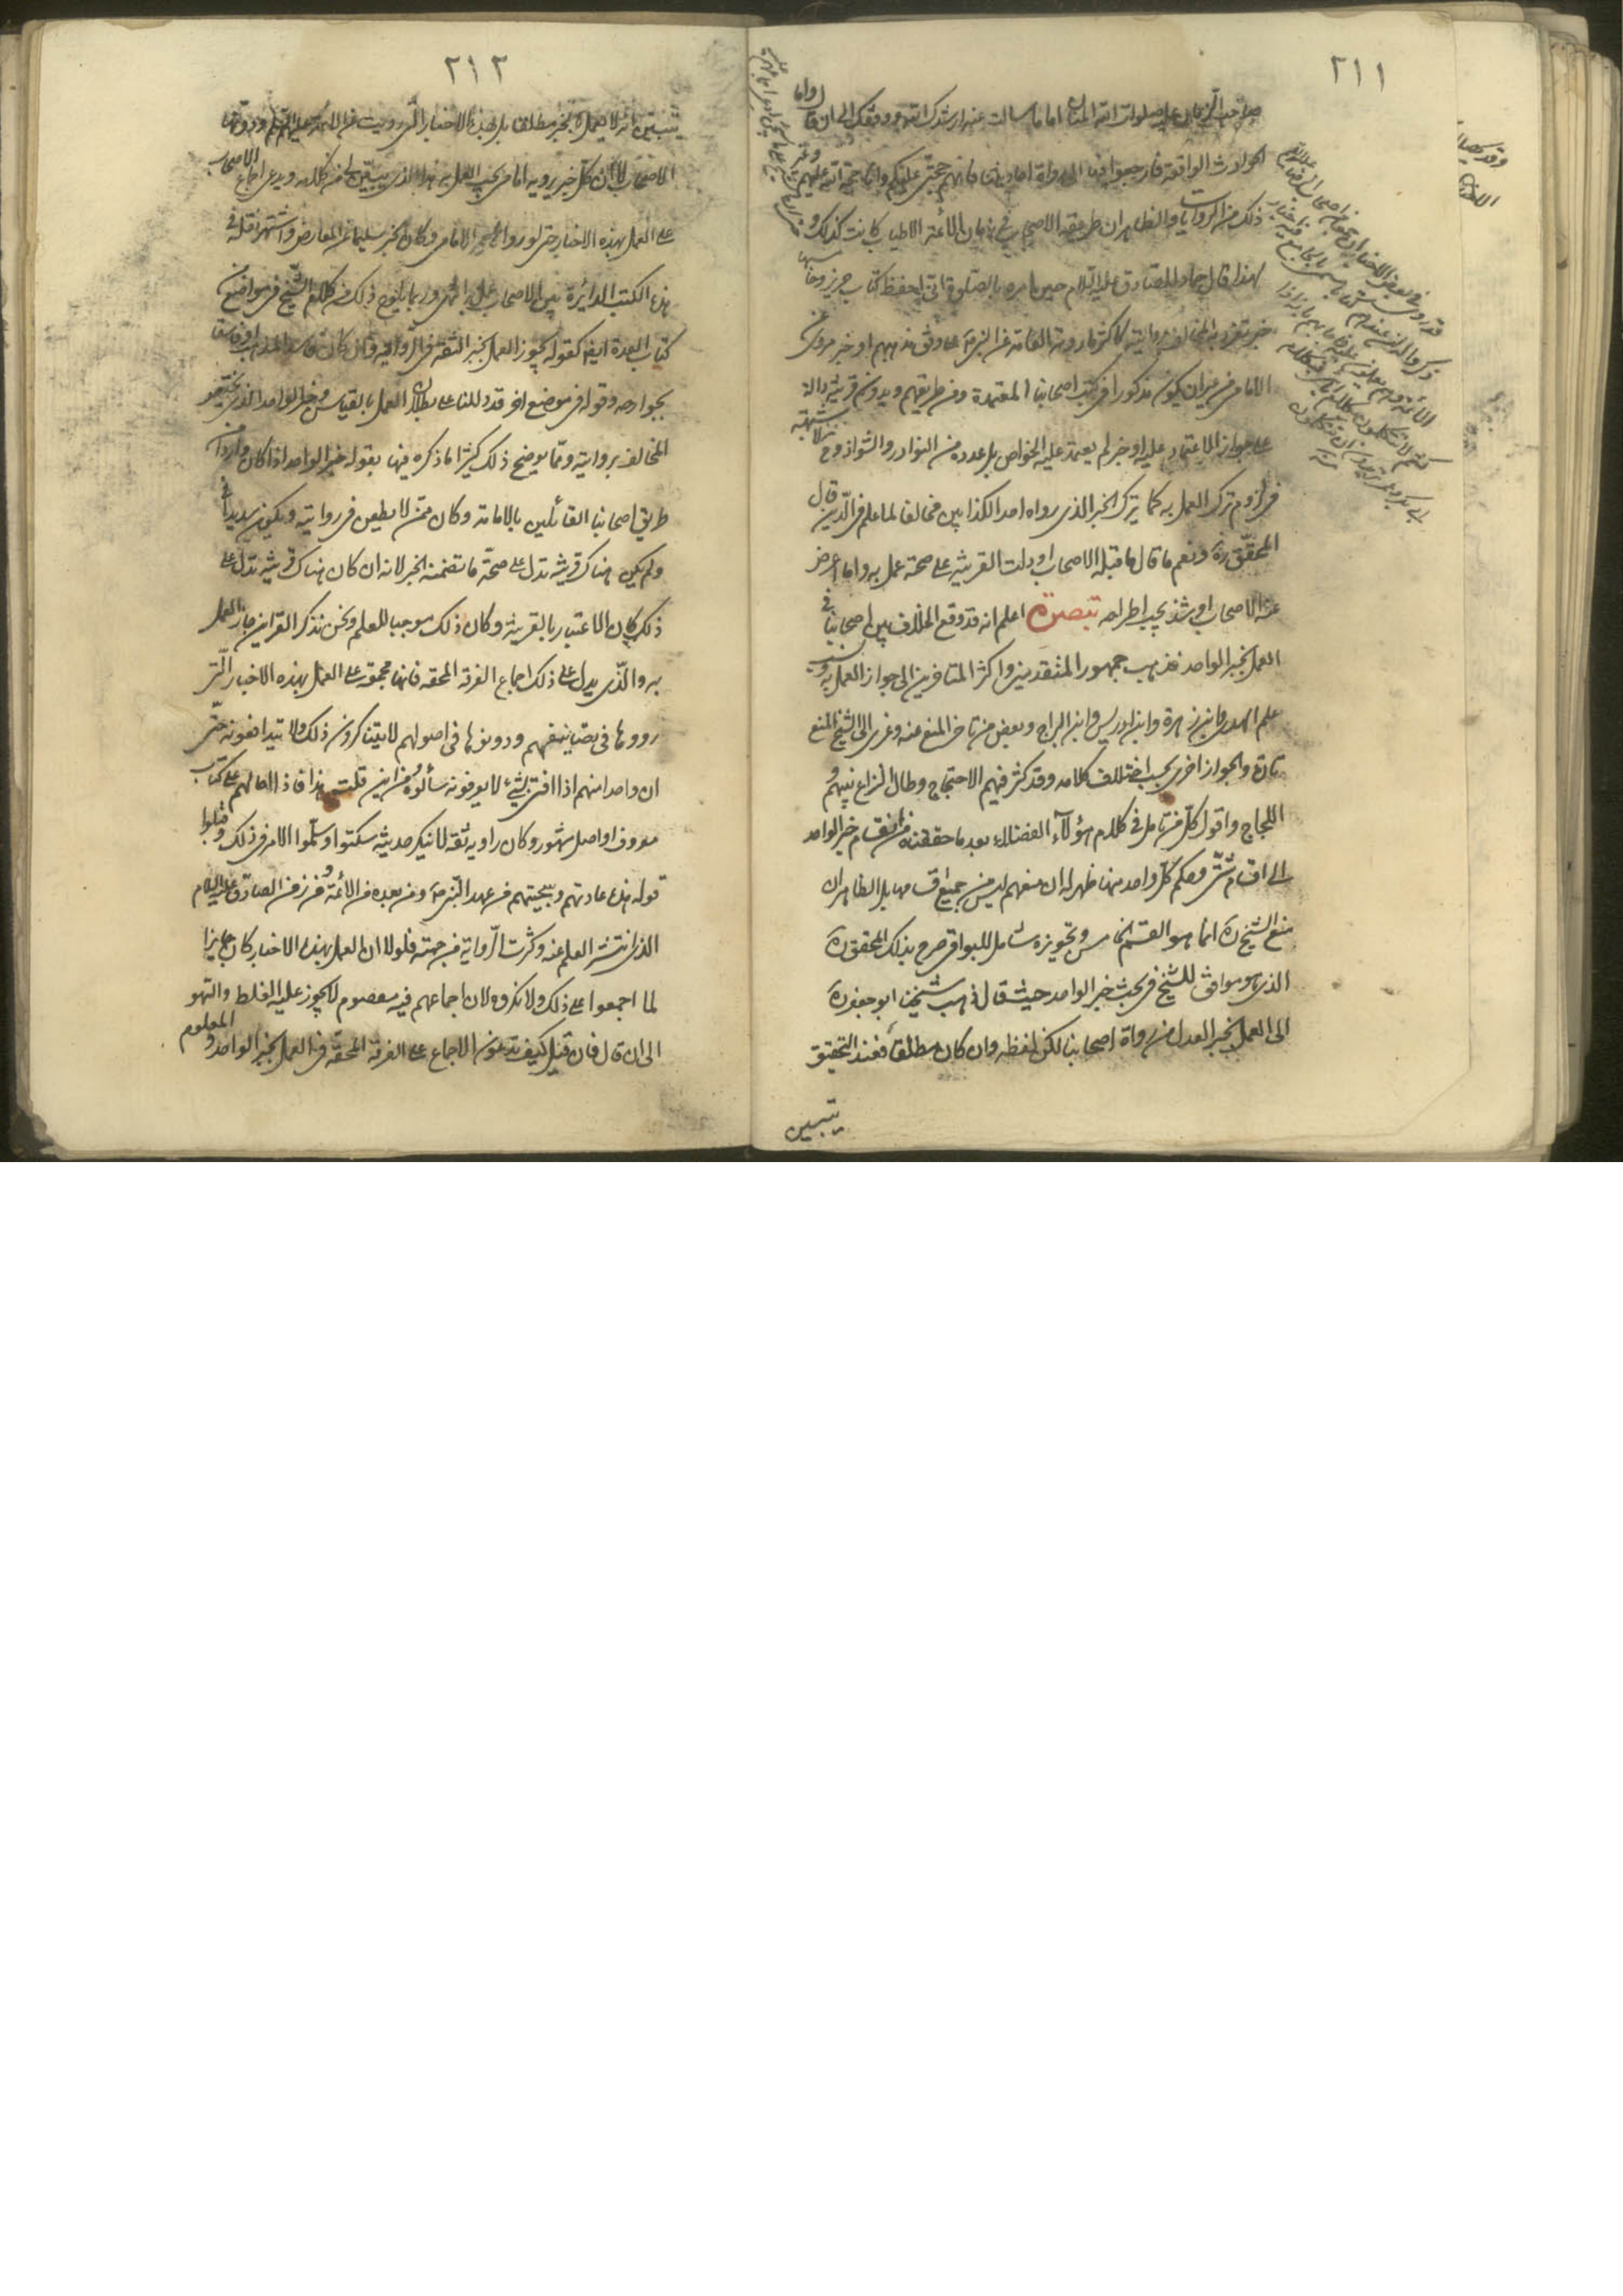 ٢١١
صاحب الزمان عليه صلوات الله المنان اما ما سالت عنه ارشدك الله ووفقك الى ان قال واما
الحوادث الواقعة فارجعوا فيها الى رواة احاديثنا فانهم حجتي عليكم وانا حجة الله عليهم وغير
ذلك من الروايات والظاهر ان طريقة الاصحاب في زمان الائمة الاطياب كانت كذلك و
لهذا قال حماد للصادق عليه السلام حين امره بالصلوة اني احفظ كتاب حريز
خبر تفرد به المخالف بروايته كاكثر ما روته العامة عن النبي ص على وفق مذهبهم او خبر مروي عن
الامامي من غير ان يكون مذكورا في كتب اصحابنا المعتمدة ومن طريقهم وبدون قرينة دالة
على جواز الاعتماد عليه او خبر لم يعتمد عليه الخواص بل عدده من النوادر والشواذ وح لا شبهة
في لزوم ترك العمل به كما يترك الخبر الذي رواه احد الكذابين مخالفا لما علم في الدين قال
المحقق ره ونعم ما قال ما قبله الاصحاب او دلت القرينة على صحة عمل به وما اعرض
عنه الاصحاب او شذ يجب اطراحه تبصرة اعلم انه قد وقع الخلاف بين اصحابنا في
العمل بخبر الواحد فذهب جمهور المتقدمين واكثر المتاخرين الى جواز العمل به و
علم الهدى وابن زهرة وابن ادريس وابن البراج وبعض من تاخر المنع عنه وعزى الى الشيخ المنع
تارة والجواز اخرى بحسب اختلاف كلامه وقد كثر فيهم الاحتجاج وطال النزاع بينهم و
اللجاج واقول كل من تامل في كلام هؤلاء الفضلاء بعد ما حققناه من انقسام خبر الواحد
الى اقسام شتى وحكم كل واحد منها ظهر له ان منعهم ليس من جميع اقسامها بل الظاهر ان
منع الشيخ ره انما هو القسم الخامس وتجويزه شامل للبواقي صرح بذلك المحقق ره
الذي هو موافق للشيخ في بحث خبر الواحد حيث قال ذهب شيخنا ابو جعفر ره
الى العمل بخبر العدل من رواة اصحابنا لكن لفظه وان كان مطلقا فعند التحقيق
يتبين
٢١٢
يتبين انه لا يعمل بالخبر مطلقا بل بهذه الاخبار التي رويت عن الائمة عليهم السلام ودونها
الاصحاب لا ان كل خبر يرويه امامي يجب العمل به هذا الذي يتبين لي من كلامه ويدعي اجماع الاصحاب
على العمل بهذه الاخبار حتى لو رواها غير الامامي وكان الخبر سليما عن المعارض واشتهر نقله في
هذه الكتب الدائرة بين الاصحاب عمل به انتهى وربما يلوح ذلك من كلام الشيخ في مواضع من
كتاب العدة ايضا كقوله يجوز العمل بخبر الثقة في الرواية وان كان فاسد المذهب او فاسقا
بجوارحه وقوله في موضع اخر قد دللنا على بطلان العمل بالقياس وخبر الواحد الذي يختص
المخالف بروايته ومما يوضح ذلك كثيرا ما ذكره فيها بقوله خبر الواحد اذا كان واردا من
طريق اصحابنا القائلين بالامامة وكان ممن لا يطعن في روايته ويكون سديدا في
ولم يكن هناك قرينة تدل على صحة ما تضمنه الخبر لانه ان كان هناك قرينة تدل على
ذلك كان الاعتبار بالقرينة وكان ذلك موجبا للعلم ونحن نذكر القراين جاز العمل
به والذي يدل على ذلك اجماع الفرقة المحقة فانها مجمعة على العمل بهذه الاخبار التي
رووها في تصانيفهم ودونوها في اصولهم لا يتناكرون ذلك ولا يتدافعونه حتى
ان واحدا منهم اذا افتى بشيء لا يعرفونه سألوه من اين قلت هذا فاذا احالهم على كتاب
معروف او اصل مشهور وكان راويه ثقة لا ينكر حديثه سكتوا وسلموا الامر في ذلك وقبلوا
قوله هذه عادتهم وسجيتهم من عهد النبي ص ومن بعده من الائمة ومن زمن الصادق عليه السلام
الذي انتشر العلم عنه وكثرت الرواية من جهته فلولا ان العمل بهذه الاخبار كان جايزا
لما اجمعوا على ذلك ولانكروه لان اجماعهم فيه معصوم لا يجوز عليه الغلط والسهو
الى ان قال فان قيل كيف تدعون الاجماع على الفرقة المحقة في العمل بخبر الواحد والمعلوم